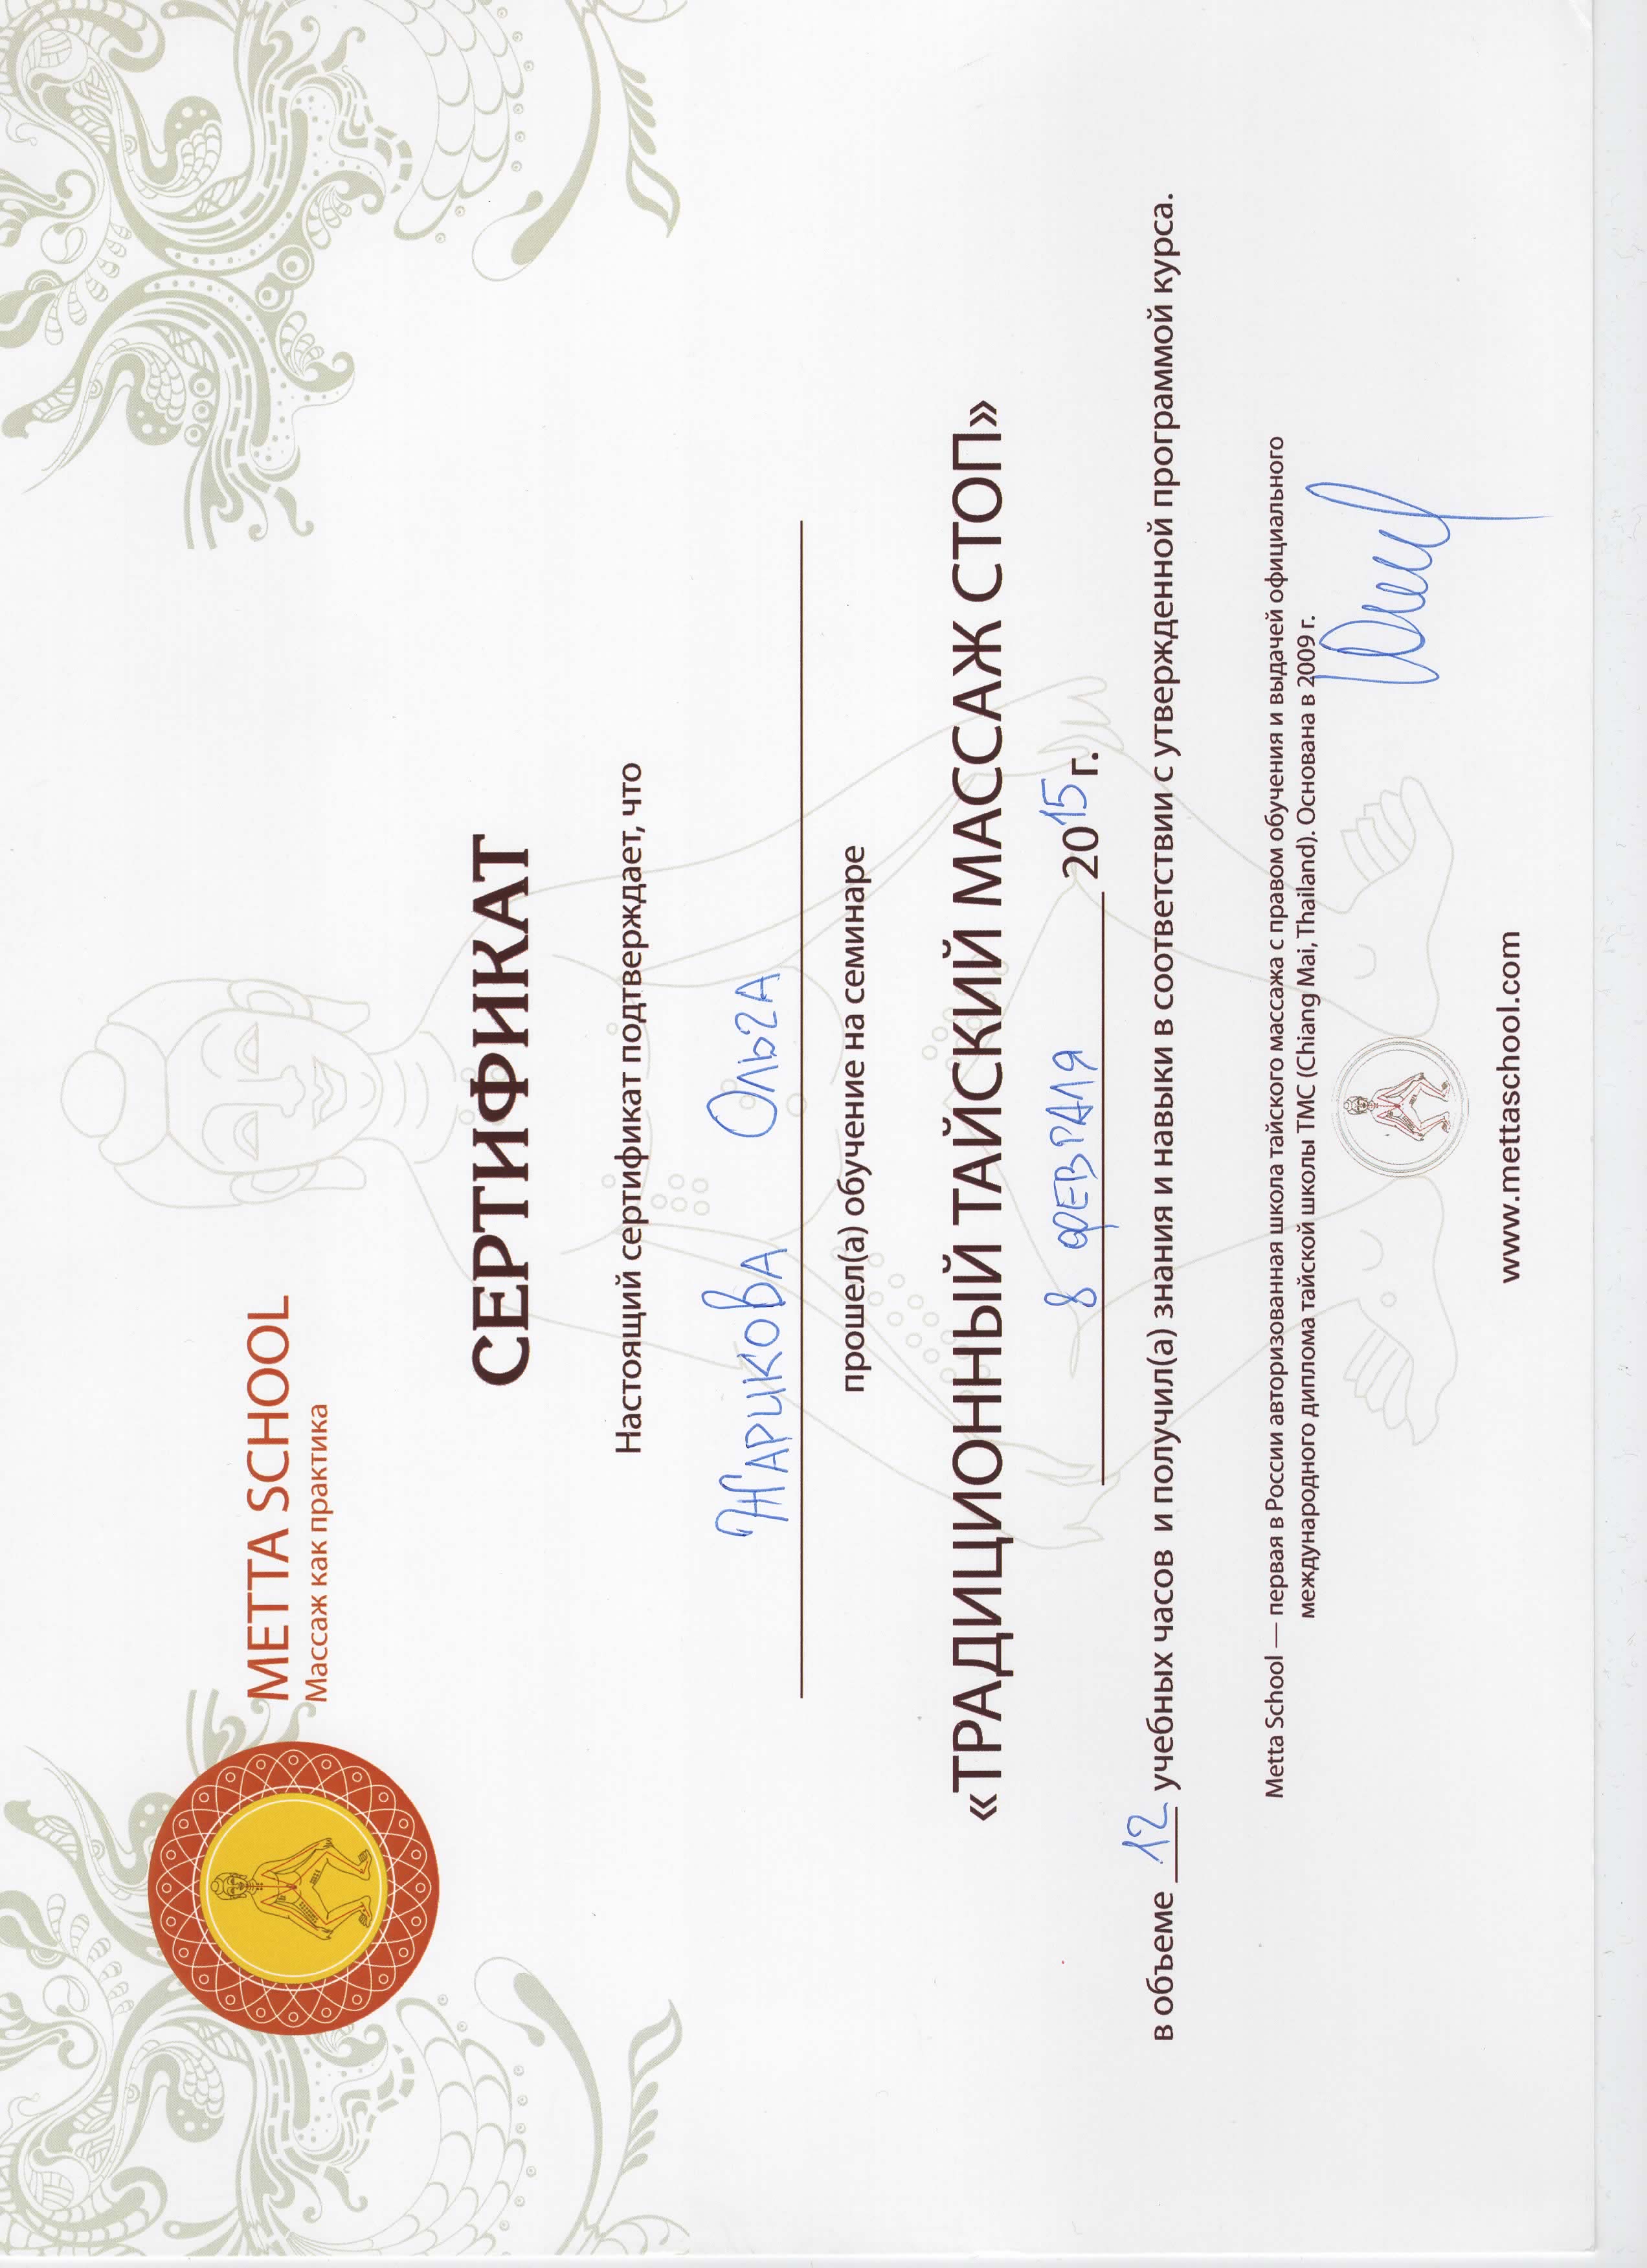 METTA SCHOOL
Массаж как практика
СЕРТИФИКАТ
Настоящий сертификат подтверждает, что
Жарикова Ольга
прошел(а) обучение на семинаре
«ТРАДИЦИОННЫЙ ТАЙСКИЙ МАССАЖ СТОП»
8 февраля 2015 г.
в объеме 12 учебных часов и получил(а) знания и навыки в соответствии с утвержденной программой курса.
Metta School — первая в России авторизованная школа тайского массажа с правом обучения и выдачей официального
международного диплома тайской школы ТМС (Chiang Mai, Thailand). Основана в 2009 г.
www.mettaschool.com